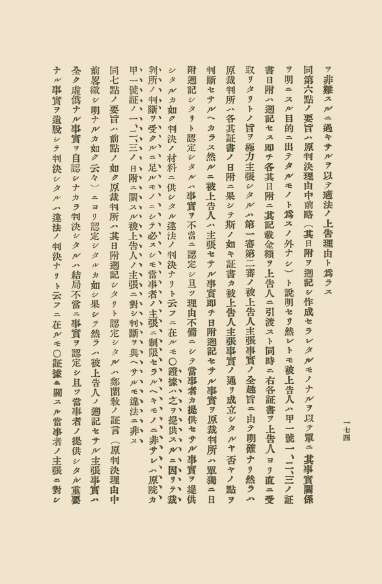 ヲ非難スルニ過キサルヲ以テ適法ノ上告理由ト爲ラス
同第六點ノ要旨ハ原判決理由中前略(其日附ヲ遡記シ作成セラレタルモノナルヲ以テ單ニ其事實關係
ヲ明ニスル目的ニ出テタルモノト爲スノ外ナシ)ト說明セリ然レトモ被上告人ハ甲一號一、二、三ノ証
書日附ハ遡記セス卽チ各其日附ニ其記載金額ヲ上告人ニ引渡スト同時ニ右各証書ヲ上告人ヨリ直ニ受
取リタリトノ旨ヲ極力主張シタルハ第一審第二審ノ被上告人主張事實ノ全趣旨ニ由テ明確ナリ然ラハ
原裁判所ハ各其証書ノ日附ニ果シテ斯ノ如キ証書カ被上告人主張事實ノ通リ成立シタルヤ否ヤノ點ヲ
判斷セサルヘカラス然ルニ被上告人ハ主張セサル事實卽チ日附遡記セサル事實ヲ原裁判所ハ單獨ニ日
附遡記シタリト認定シタルハ事實ヲ不當ニ認定シ且ツ理由不備ニシテ當事者カ提供セサル事實ヲ提供
シタルカ如ク判決ノ材料ニ供シタル違法ノ判決ナリト云フニ在ルモ〇證據ハ之ヲ提供スルニ因リテ裁
判所ノ判斷ヲ受クルニ足ルモノニシテ必スシモ當事者ノ主張ニ制限セラルヘキモノニ非サレハ原院カ
甲一號証ノ一、二、三ノ日附ニ關スル被上告人ノ主張ニ對シ判斷ヲ與ヘサルモ違法ニ非ス
同七點ノ要旨ハ前點ノ如ク原裁判所ハ其日附遡記シタリト認定シタルハ鄭蘭敎ノ証言(原判決理由中
前畧微シ明ナルカ如ク云々)ニヨリ認定シタルカ如シ果シテ然ラハ被上告人ノ遡記セサル主張事實ハ
全ク虛僞ナル事實ヲ自認シナカラ判決シタルハ結局不當ニ事實ヲ認定シ且ツ當事者ノ提供シタル重要
ナル事實ヲ遺脫シテ判決シタルハ違法ノ判決ナリト云フニ在ルモ〇證據ニ關スル當事者ノ主張ニ對シ
一七四